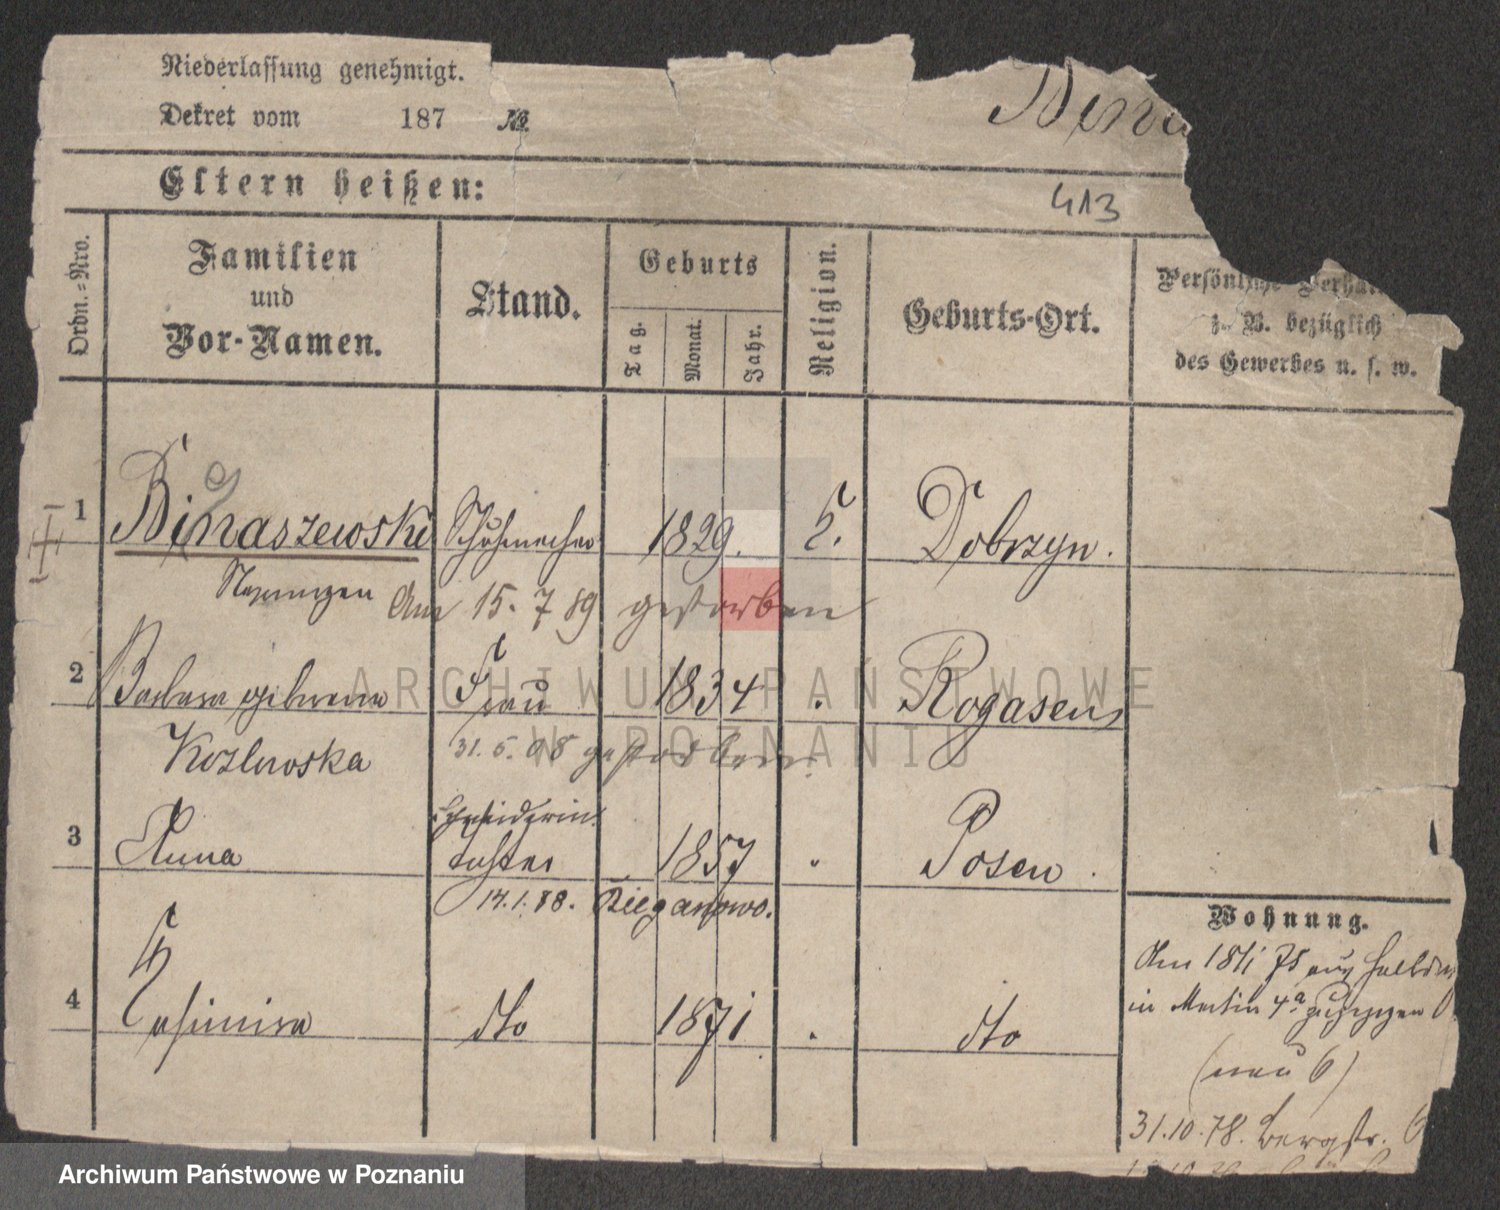 Niederlassung genehmigt.
Dekret vom 187 №
Bina
Eltern heißen:
413
Ordn.-Nro.
Familien
und
Vor-Namen.
Stand.
Geburts
Tag.
Monat.
Jahr.
Religion.
Geburts-Ort.
Persönliche Verhält
z. B. bezüglich
des Gewerbes u. s. w.
1 Binaszewski Schuhmacher 1829. k. Dobrzyn.
Am 15. 7 89 gestorben
2 Barbara geborene Frau 1834 . Rogasen
Kozlowska 31. 5. 08 gestorben.
Schneiderin
3 Anna Tochter 1857 . Posen.
14.1.88.
4 Kasimira dto 1871 . dto
Wohnung.
Am 18/1 75 aus Halbdorf
in Martin 4a gezogen
(neu 6)
31.10.78. Bergstr. 6
ARCHIWUM PAŃSTWOWE
W POZNANIU
Archiwum Państwowe w Poznaniu